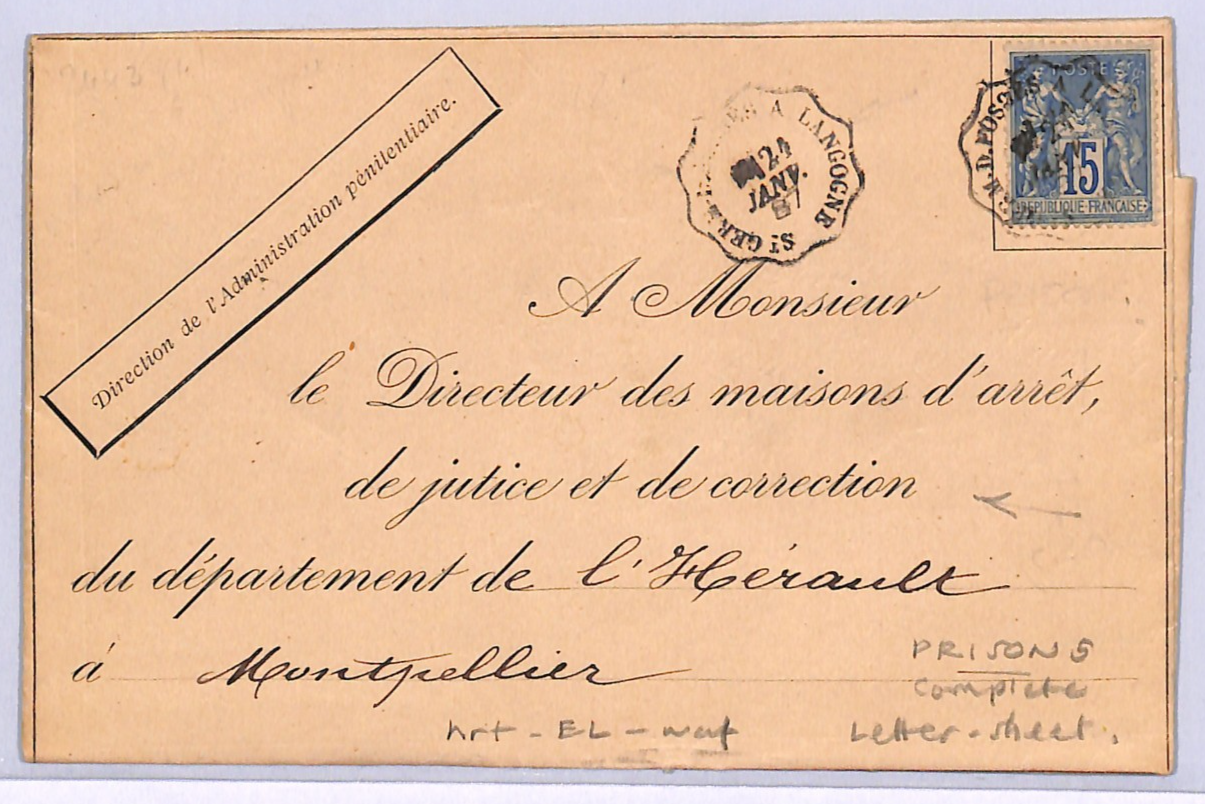 Direction de l'Administration pénitentiaire.
A LANGOGNE
24
JANV.
87
ST GER
POSTE
15
REPUBLIQUE FRANÇAISE
D. FOSSES A LA
JANV
A Monsieur
le Directeur des maisons d'arrêt,
de jutice et de correction
du département de l'Hérault
à Montpellier
PRISONS
Complete
Letter-sheet.